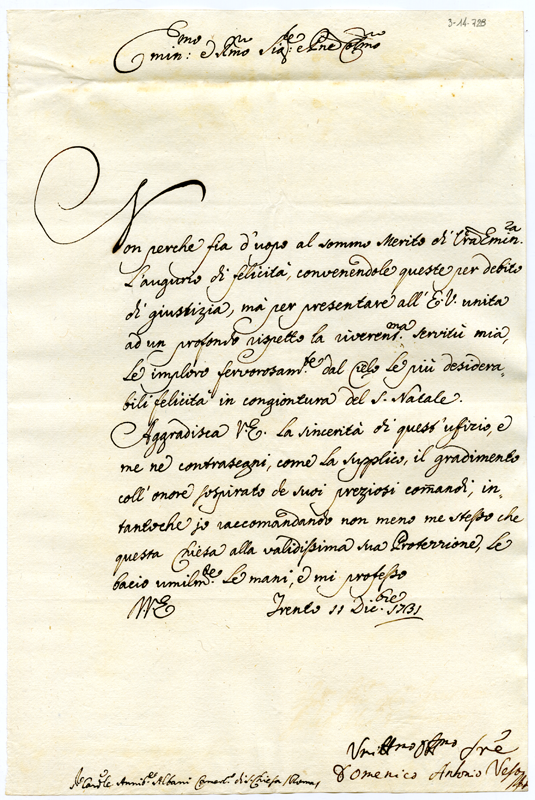 3-14-728
Emin:mo e Rmo Sig:re e Pne Colmo
Non perche fia d'uopo al sommo Merito di Vra Emin.za
l'augurio di felicità, convenendole queste per debito
di giustizia, mà per presentare all'E.V. unita
ad un profondo rispetto la riveren.ma servitù mia,
Le imploro fervorosam.te dal cielo le più desidera-
bili felicità in congiontura del S. Natale.
Aggradisca V.E. la sincerità di quest'ufizio, e
me ne contrasegni, come la supplico, il gradimento
coll'onore sospirato de suoi preziosi comãndi, in-
tantoche io raccomandando non meno me stesso che
questa Chiesa alla validissima sua Protezzione, le
bacio umilm.te le mani, e mi professo
V.E.
Trento 11 Dic.bre 1731
Domenico Antonio Vesc
Card.le Annib.e Albani Camerl.o di S. Chiesa (Roma)